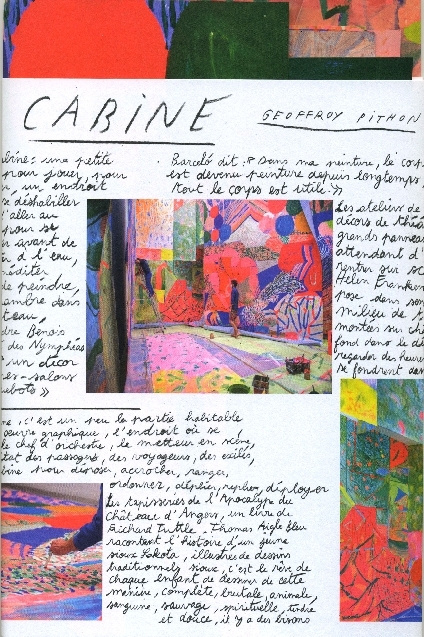 CABINE
GEOFFROY PITHON
une petite
pour jouer, pour
un endroit
se déshabiller
aller au
pour se
avant de
d l'eau,
méditer
de peindre,
dans
Benois
des Nymphéas
un décor
salons
»
Barceló dit : « Dans ma peinture, le corps
est devenu peinture depuis longtemps,
tout le corps est utile. »
Les ateliers de
décors de
grands panneaux
attendant d
rentrer sur
Helen Franken
pose dans son
milieu de
montées sur
fond dans le
regarder des heures
se fondrent dans
c'est un peu la partie habitable
oeuvre graphique, l'endroit où se
le chef d'orchestre, le metteur en scène,
des passagers, des voyageurs, des exilés,
pour déposer, accrocher, ranger,
ordonner, déplier, replier, déployer
Les tapisseries de l'Apocalypse du
château d'Angers, un livre de
Richard Tuttle. Thomas Aigle Bleu
racontent l'histoire d'un jeune
sioux Lakota, illustrés de dessins
traditionnels sioux, c'est le rêve de
chaque enfant de dessiner de cette
manière, complète, brutale, animale,
sanguine, sauvage, spirituelle, tendre
et douce, il y a des bisons